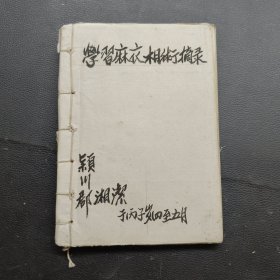 學習麻衣相術摘录
穎川郡湘潔
于丙子岁四至五月